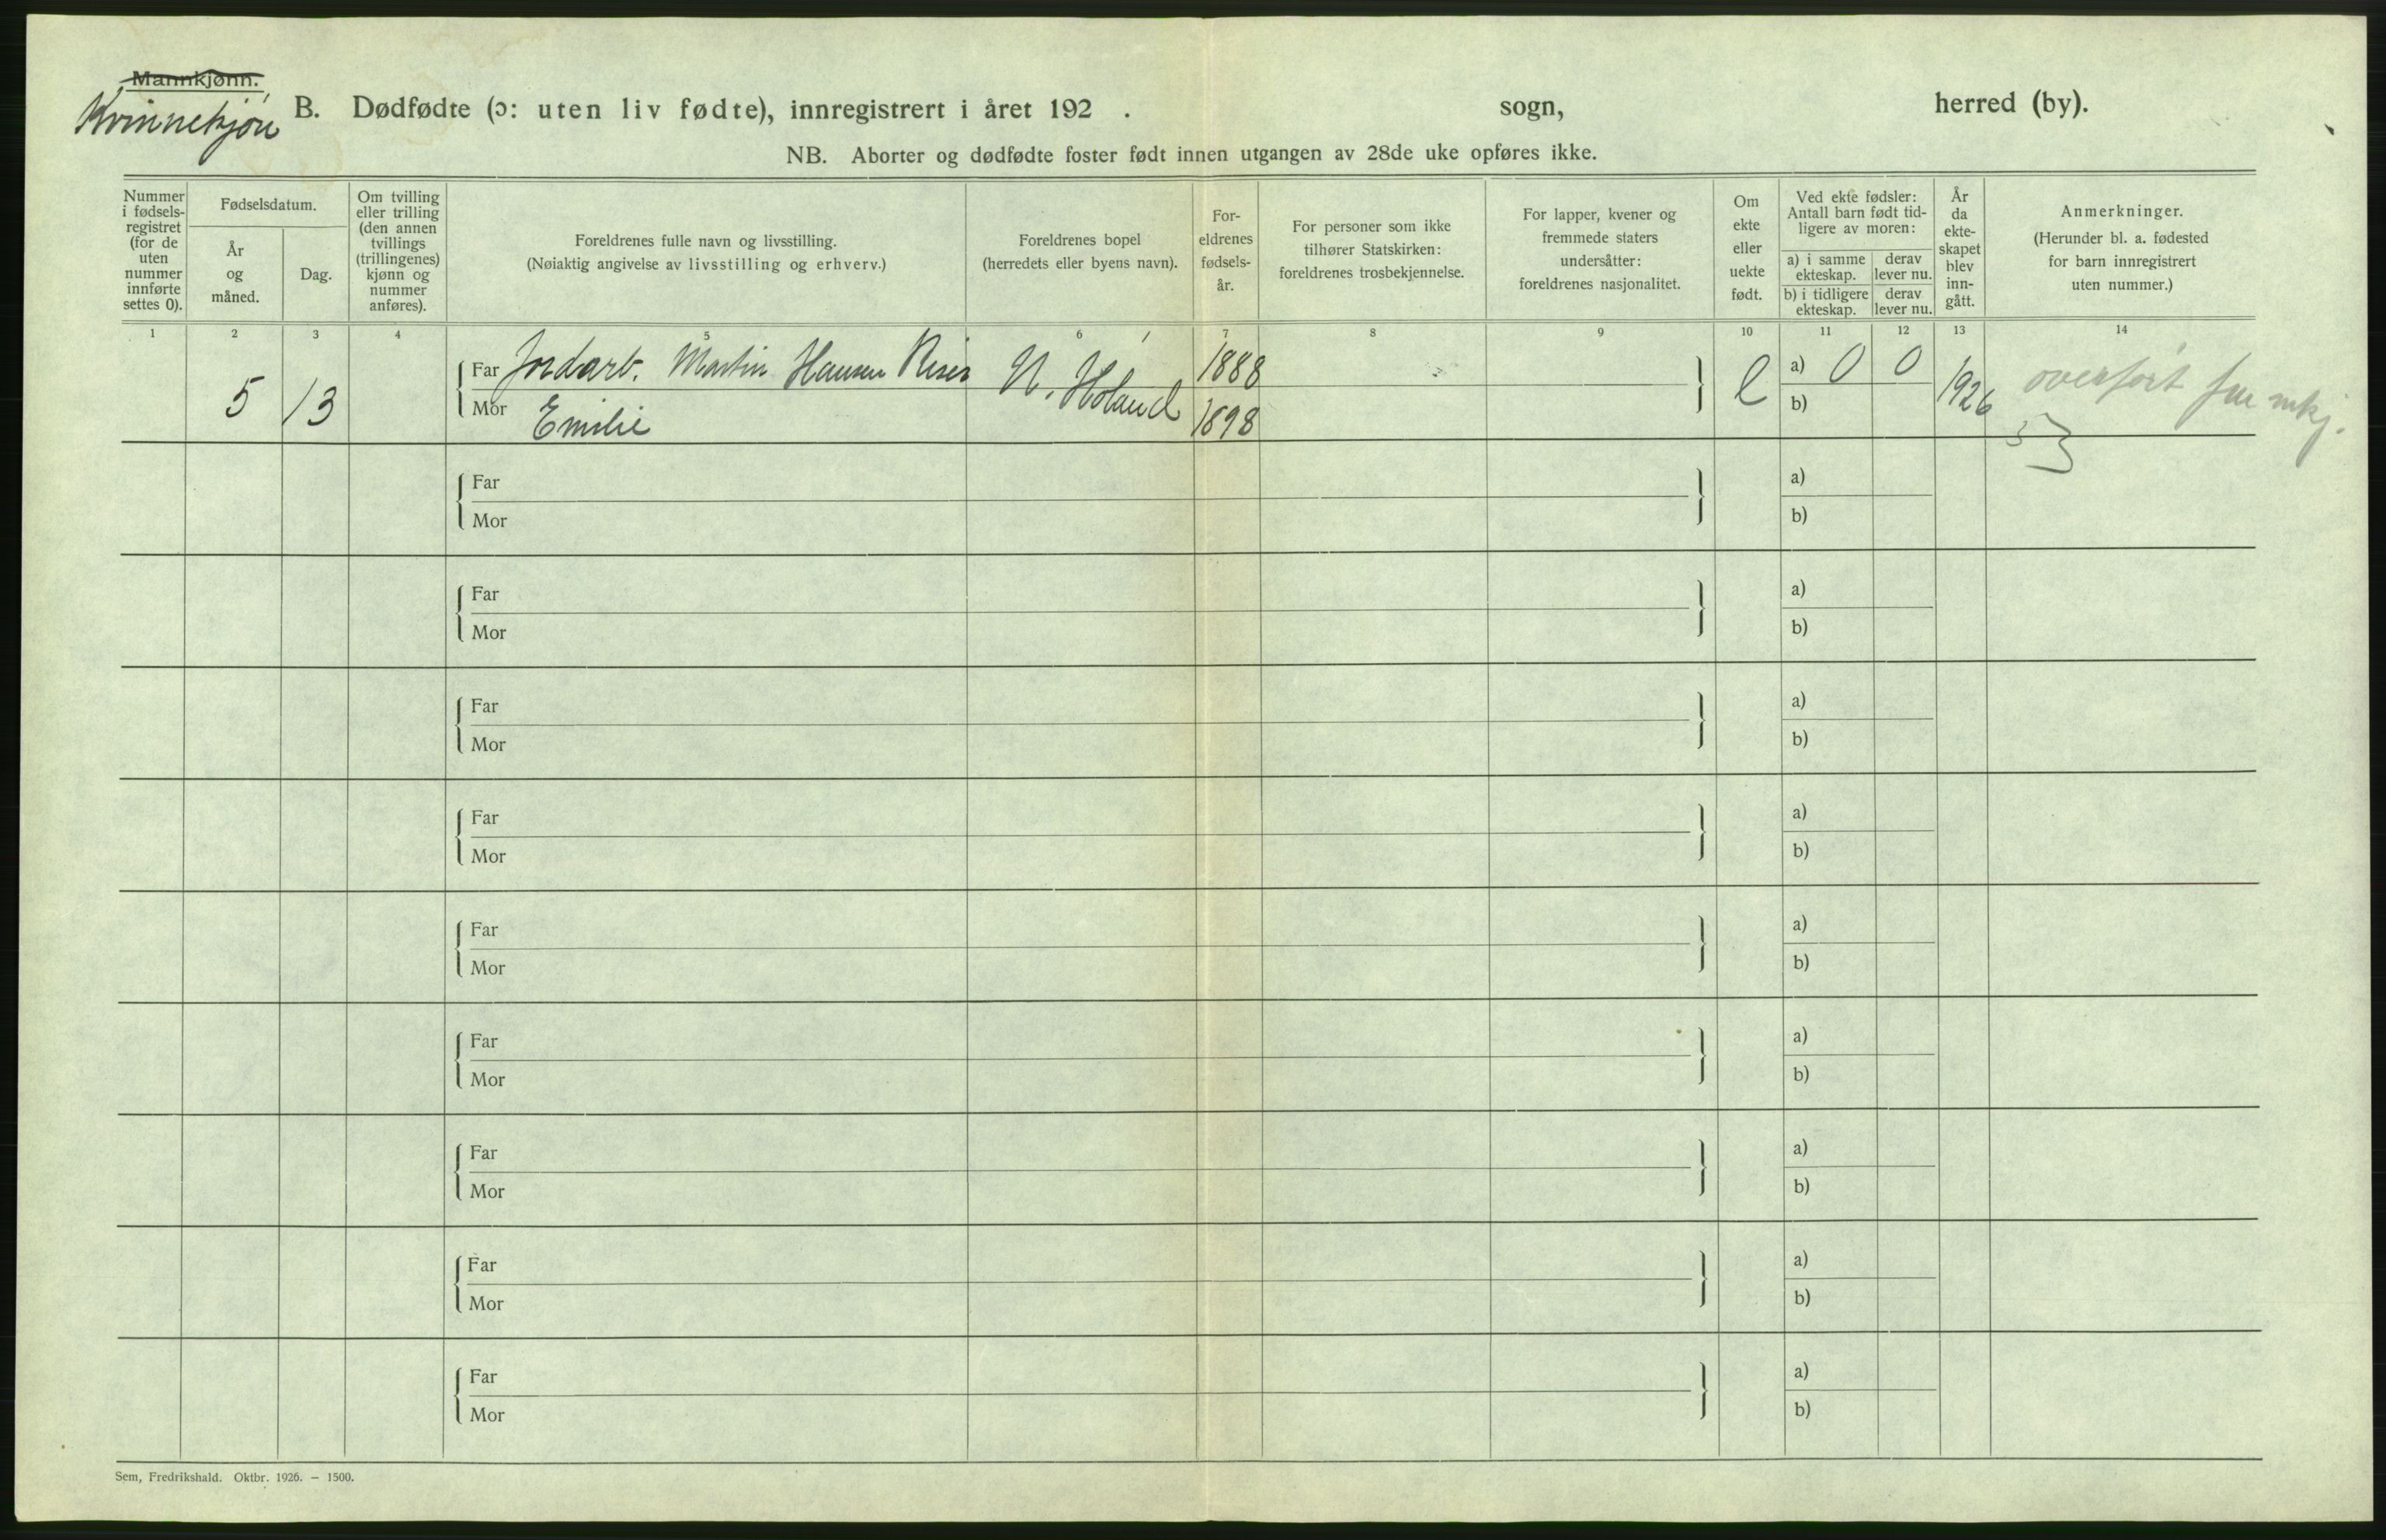 Mannkjønn.
Kvinnekjøn
B. Dødfødte (ɔ: uten liv fødte), innregistrert i året 192 . sogn, herred (by).
NB. Aborter og dødfødte foster født innen utgangen av 28de uke opføres ikke.
Nummer
i fødsels-
registret
(for de
uten
nummer
innførte
settes 0).
Fødselsdatum.
År
og
måned.
Dag.
Om tvilling
eller trilling
(den annen
tvillings
(trillingenes)
kjønn og
nummer
anføres).
Foreldrenes fulle navn og livsstilling.
(Nøiaktig angivelse av livsstilling og erhverv.)
Foreldrenes bopel
(herredets eller byens navn).
For-
eldrenes
fødsels-
år.
For personer som ikke
tilhører Statskirken:
foreldrenes trosbekjennelse.
For lapper, kvener og
fremmede staters
undersåtter:
foreldrenes nasjonalitet.
Om
ekte
eller
uekte
født.
Ved ekte fødsler:
Antall barn født tid-
ligere av moren:
a) i samme
ekteskap.
derav
lever nu.
b) i tidligere
ekteskap.
derav
lever nu.
År
da
ekte-
skapet
blev
inn-
gått.
Anmerkninger.
(Herunder bl. a. fødested
for barn innregistrert
uten nummer.)
1 2 3 4 5 6 7 8 9 10 11 12 13 14
Far Jordarb. Martin Hansen 1888 a) 0 0
5 13 N. Høland e 1926 overført fra mkj.
Mor Emilie 1898 b)
Far a)
Mor b)
Far a)
Mor b)
Far a)
Mor b)
Far a)
Mor b)
Far a)
Mor b)
Far a)
Mor b)
Far a)
Mor b)
Far a)
Mor b)
Far a)
Mor b)
Sem, Fredrikshald. Oktbr. 1926. — 1500.